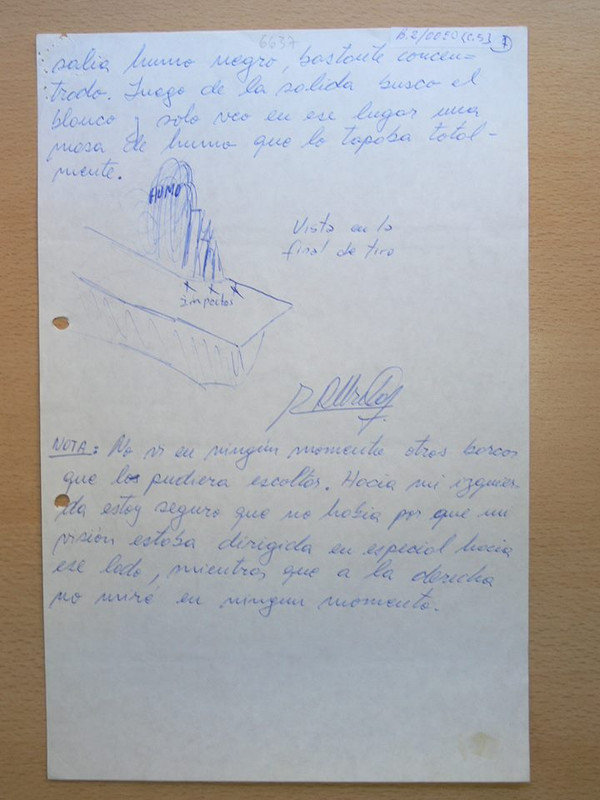 6637
salia humo negro, bastante concen-
trado. Luego de la salida busco el
blanco y solo veo en ese lugar una
masa de humo que lo tapaba total-
mente.
HUMO
Vista en la
final de tiro
impactos
NOTA: No vi en ningún momento otros barcos
que los pudiera escoltar. Hacia mi izquier-
da estoy seguro que no habia por que mi
visión estaba dirigida en especial hacia
ese lado, mientras que a la derecha
no miré en ningun momento.